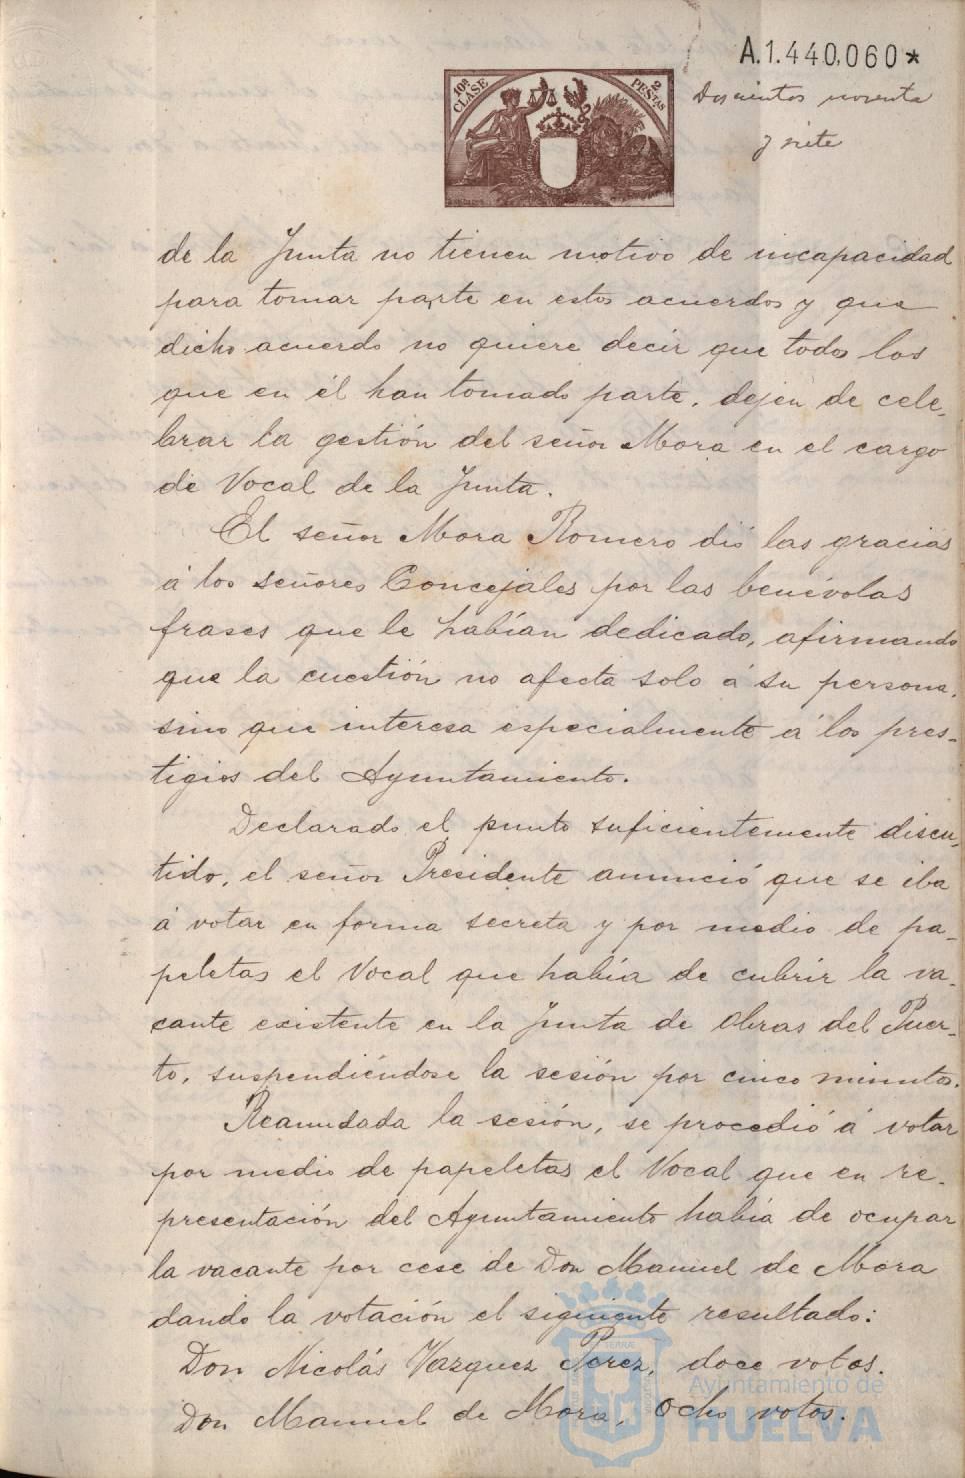 A.1.440,060*
10ª CLASE
2 PESTAS
Doscientos noventa
y siete
de la Junta no tienen motivo de incapacidad
para tomar parte en estos acuerdos y que
dicho acuerdo no quiere decir que todos los
que en él han tomado parte, dejen de cele-
brar la gestión del señor Mora en el cargo
de Vocal de la Junta.
El señor Mora Romero dió las gracias
á los señores Concejales por las benévolas
frases que le habían dedicado, afirmando
que la cuestión no afecta solo á su persona,
sino que interesa especialmente á los pres-
tigios del Ayuntamiento.
Declarado el punto suficientemente discu-
tido, el señor Presidente anunció que se iba
á votar en forma secreta y por medio de pa-
peletas el Vocal que había de cubrir la va-
cante existente en la Junta de Obras del Puer-
to, suspendiéndose la sesión por cinco minutos.
Reanudada la sesión, se procedió á votar
por medio de papeletas el Vocal que en re-
presentación del Ayuntamiento había de ocupar
la vacante por cese de Don Manuel de Mora
dando la votación el siguiente resultado:
Don Nicolás Vazquez Perez, doce votos.
Don Manuel de Mora, ocho votos.
Ayuntamiento de
HUELVA